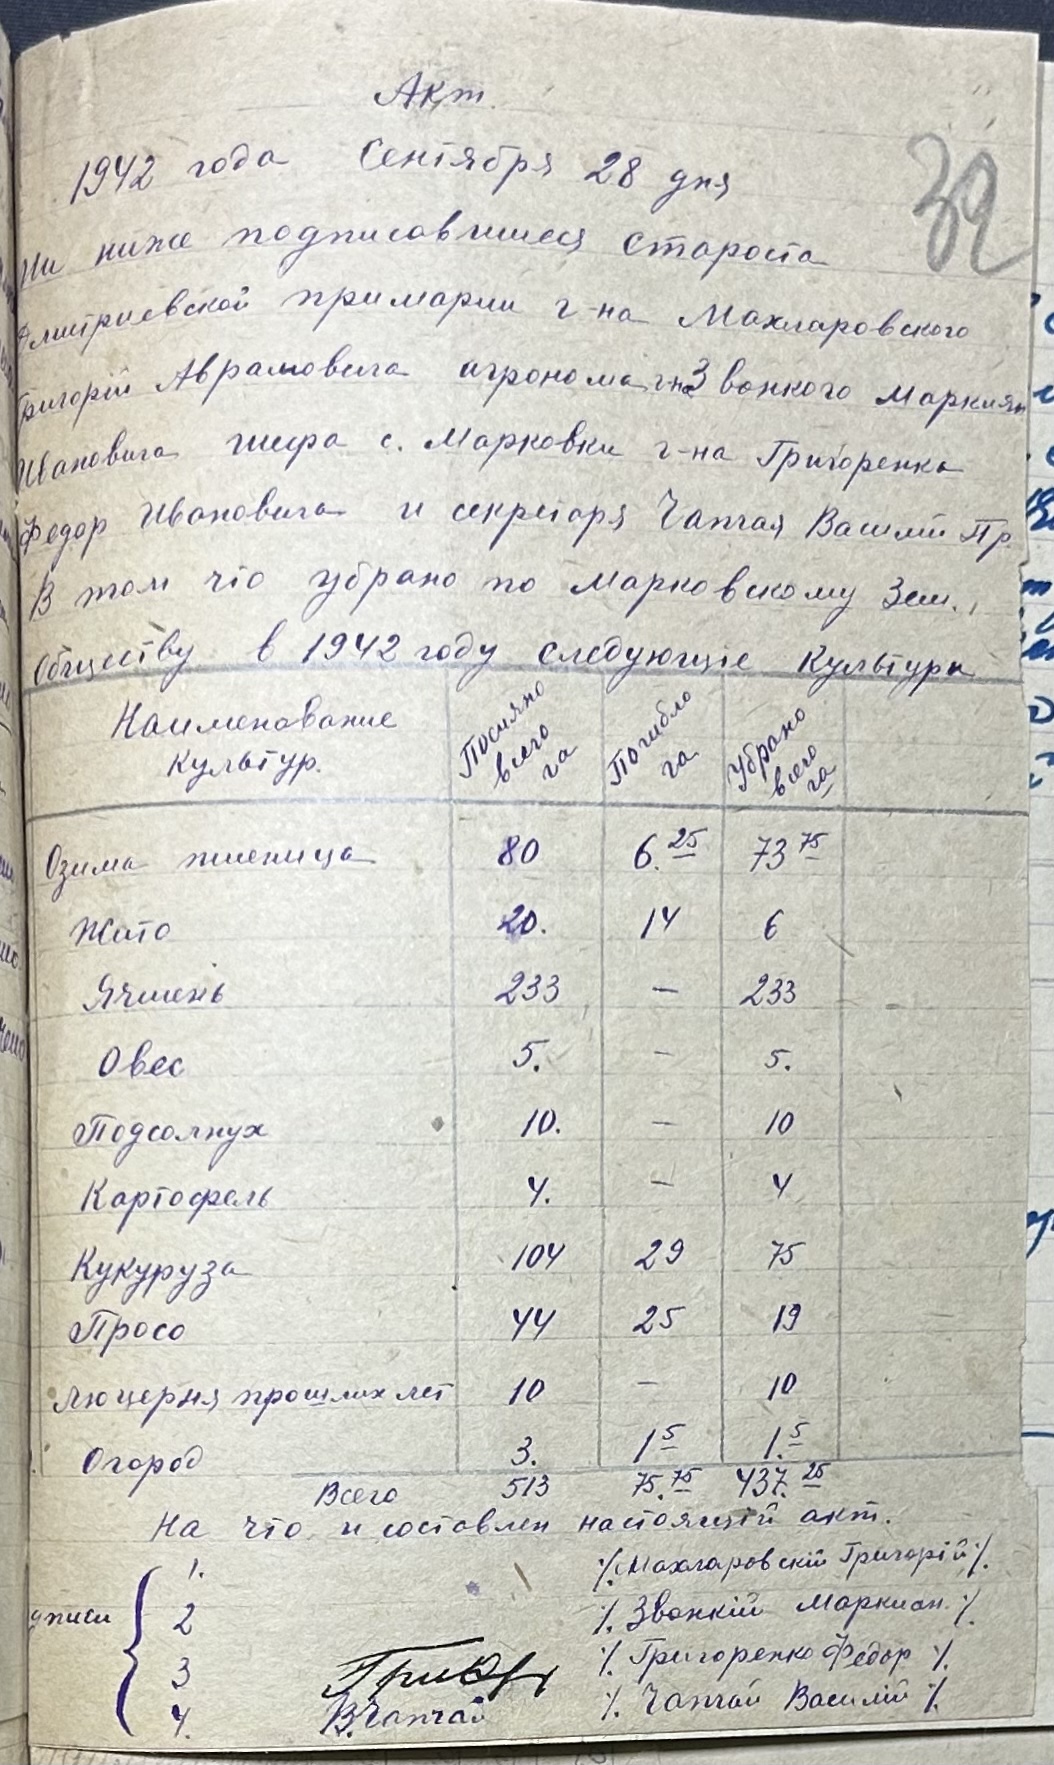 Акт.
32
1942 года Сентября 28 дня
Ми ниже подписавшиеся староста
Дмитриевской примарии г-на Махларовского
Григорій Аврамовича агронома г-на Звонкого Маркиян
Ивановича шефа с. Марковки г-на Григоренка
Федор Ивановича и секретаря Чапчая Василій Пр.
В том что убрано по Марковскому Зем.
Обществу в 1942 году следующіе культури
Наименование культур. Посияно всего га Погибло га Убрано всего га
Озима пшеница 80 6.25 73 75
Жито 20. 14 6
Ячмень 233 — 233
Овес 5. — 5.
Подсолнух 10. — 10
Картофель 4. — 4
Кукуруза 104 29 75
Просо 44 25 19
Люцерня прошлих лет 10 — 10
Огород 3. 1 5 1.5
Всего 513 75.75 437.25
На что и составлен настоящій акт.
дписи
1. /. Махларовскій Григорій /.
2 /. Звонкій Маркиян /.
3 /. Григоренко Федор /.
4. В.Чапчай /. Чапчай Василій /.